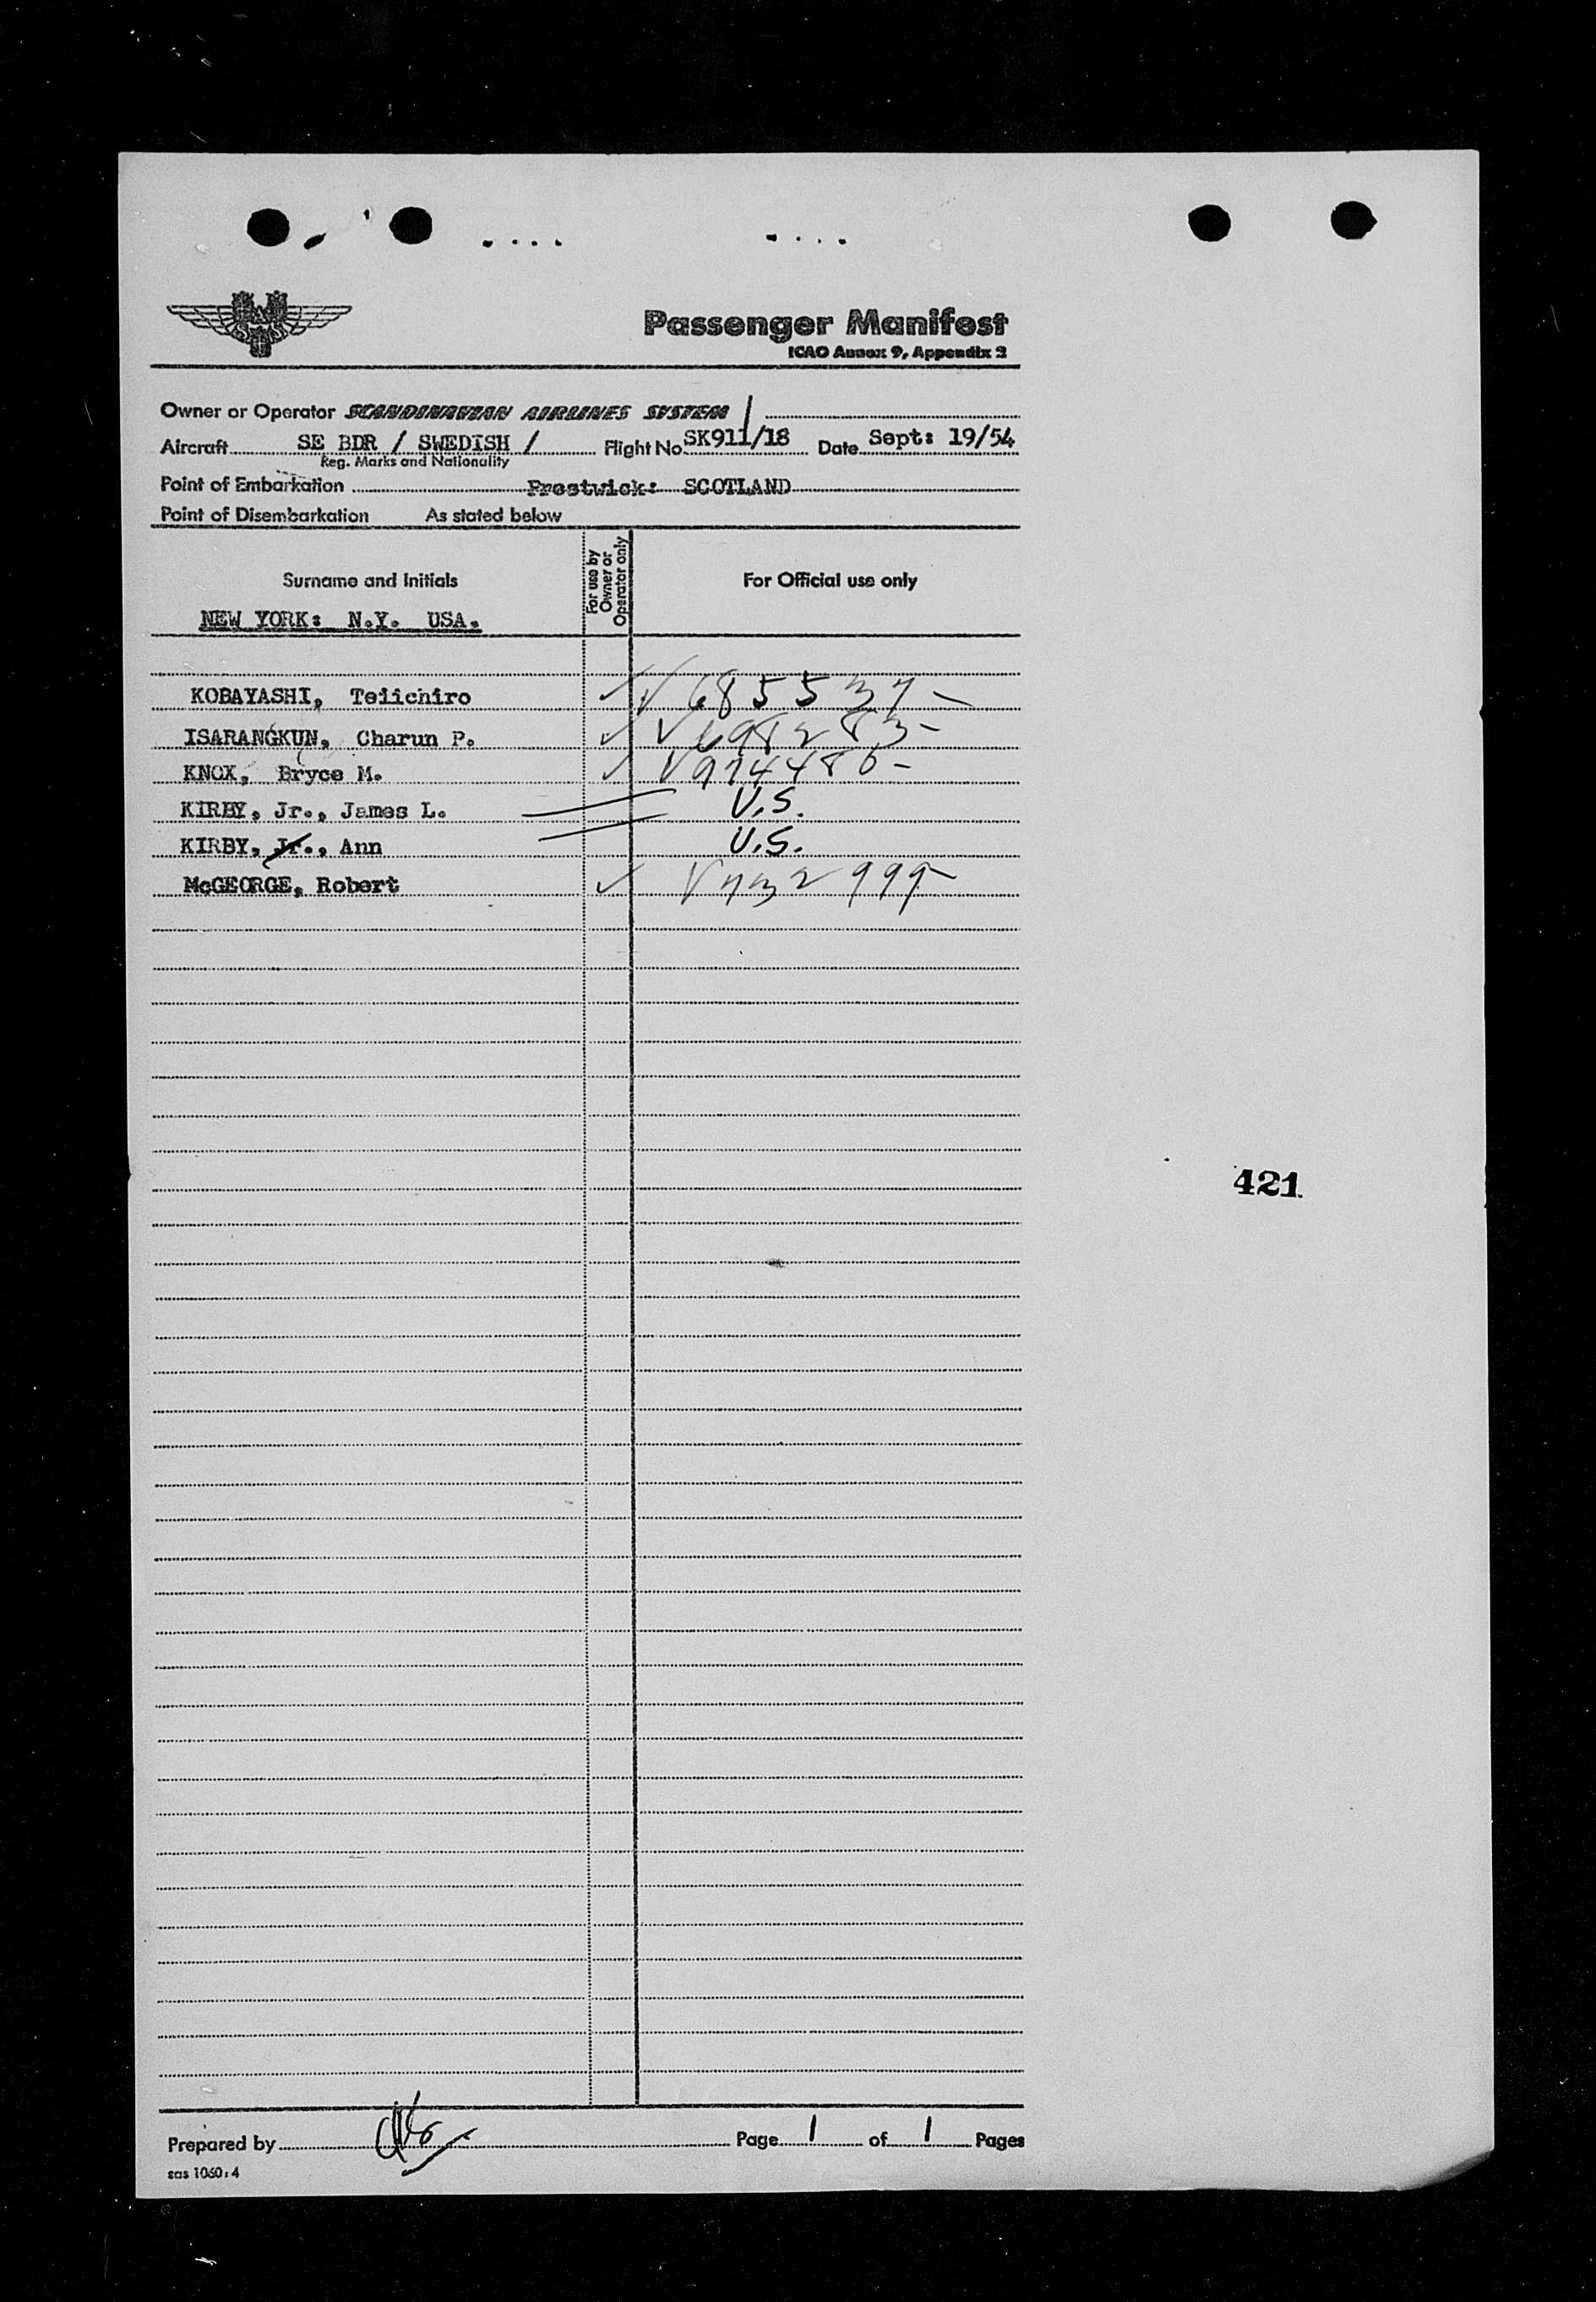 Passenger Manifest
ICAO Annex 9, Appendix 2
Owner or Operator SCANDINAVIAN AIRLINES SYSTEM /
Aircraft SE BDR / SWEDISH / Flight No. SK911/18 Date Sept: 19/54
Reg. Marks and Nationality
Point of Embarkation Prestwick: SCOTLAND
Point of Disembarkation As stated below
Surname and Initials For use by Owner or Operator only For Official use only
NEW YORK: N.Y. USA.
KOBAYASHI, Teiichiro ✓ ✓ 685537-
ISARANGKUN, Charun P. ✓ ✓ 698283-
KNOX, Bryce M. ✓ ✓
KIRBY, Jr., James L. U.S.
KIRBY, Jr., Ann U.S.
McGEORGE, Robert ✓ ✓
421
Prepared by Page 1 of 1 Pages
sas 1060:4